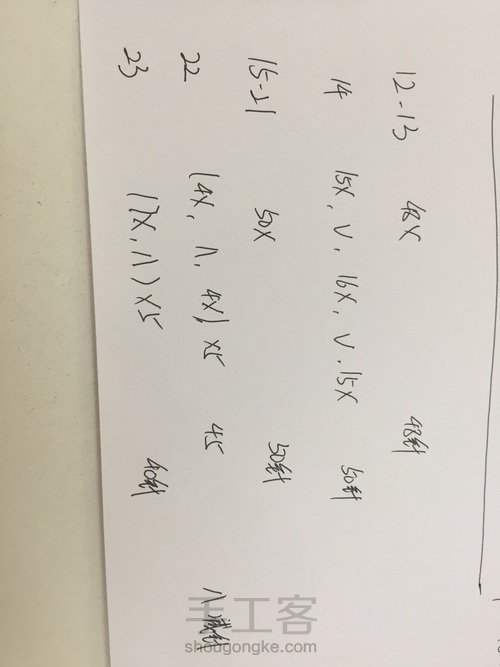 12-13 48X 48针
14 15X, V, 16X, V. 15X 50针
15-21 50X 50针
22 (4X, Λ, 4X) X5 45 Λ减针
23 (7X, Λ) X5 40针
手工客
shougongke.com